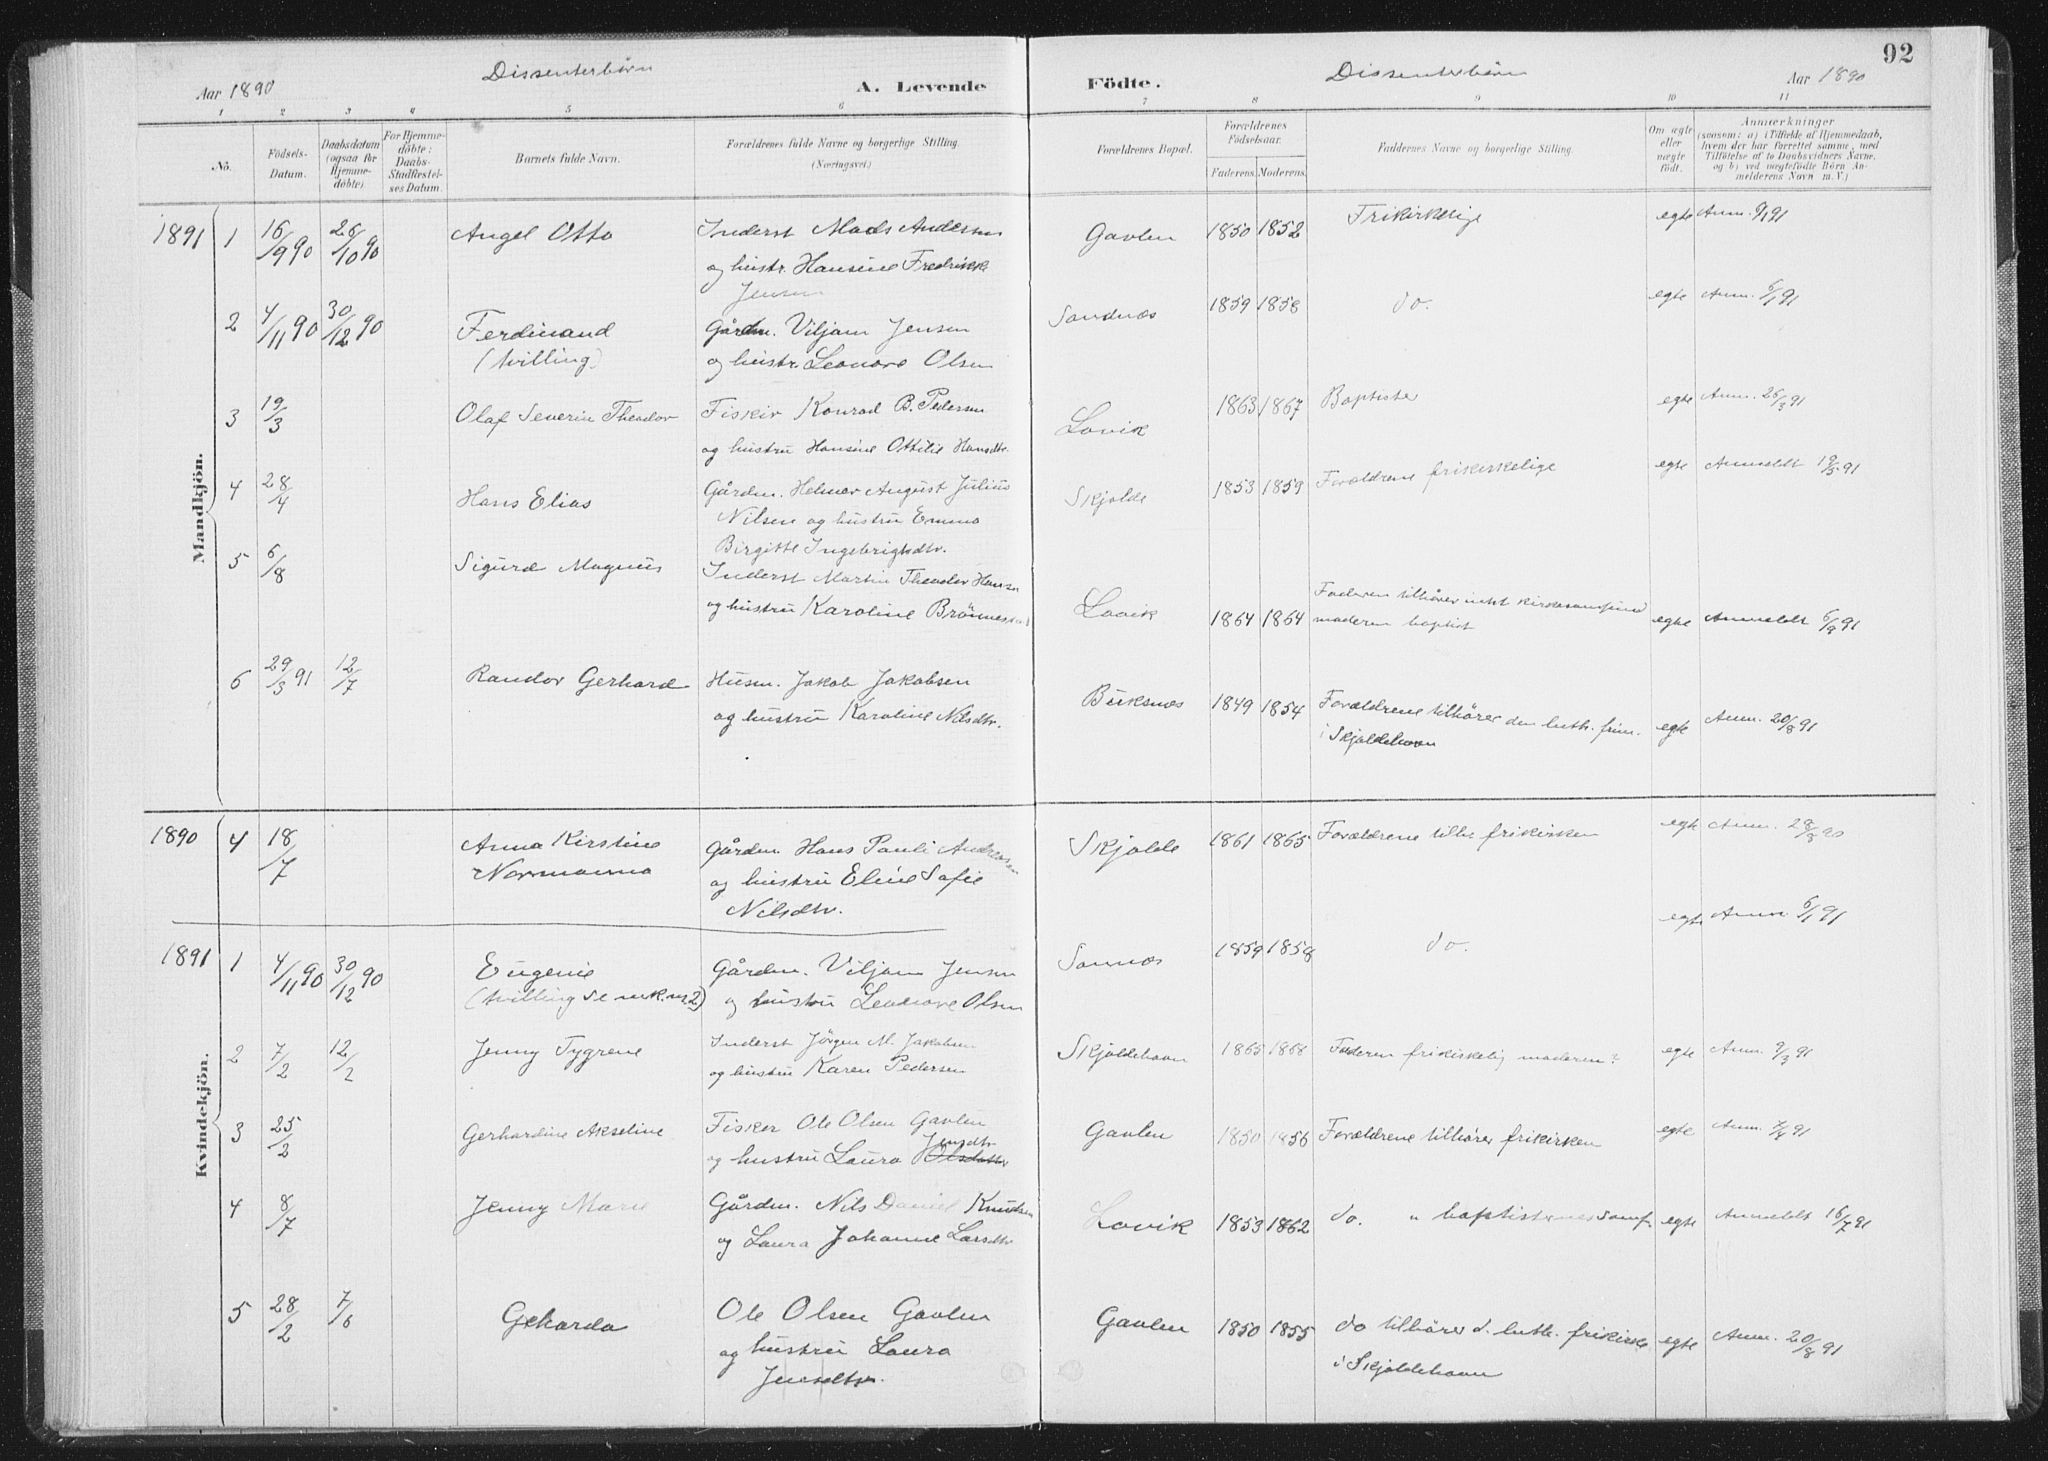 92
Dissenterbörn
Dissenterbörn
Aar 1890
A. Levende
Födte.
Aar 1890
1 2 3 4 5 6 7 8 9 10 11
No.
Födsels-Datum.
Daabsdatum (ogsaa for Hjemmedöbte).
For Hjemmedöbte: Daabs-Stadfæstelses Datum.
Barnets fulde Navn.
Forældrenes fulde Navne og borgerlige Stilling.
(Næringsvei.)
Forældrenes Bopæl.
Forældrenes Födselsaar.
Faderens. Moderens.
Faddernes Navne og borgerlige Stilling.
Om ægte eller uægte födt.
Anmærkninger
(saasom: a) i Tilfælde af Hjemmedaab,
hvem der har forrettet samme, med
Tilföielse af to Daabsvidners Navne,
og b) ved uægtefödte Börn An-
melderens Navn m. V.)
Mandkjön.
1891 1 16/9 90 26/10 90 Angel Otto Inderst Mads Andersen Gavlen 1850 1852 Frikirkelige egte Anm. 9/1 91
og hustr. Hansine Fredrikke
Jensen
2 4/11 90 30/12 90 Ferdinand Gårdm. Viljam Jensen Sandnæs 1859 1858 do. egte Anm. 6/1 91
(tvilling) og hustr. Leonore Olsen
3 19/3 Olaf Severin Theodor Fisker Konrad B. Pedersen Lovik 1863 1867 Baptister egte Anm. 26/3 91
og hustru Hansine Ottilie Hansdtr.
4 28/4 Hans Elias Gårdm. Helmer August Julius Skjolde 1853 1859 Forældrene frikirkelige egte Anmeldt 19/5 91
Nilsen og hustru Emma
Birgitte Ingebrigtsdtr.
5 6/8 Sigurd Magnus Inderst Martin Theodor Hansen Faderen tilhører intet kirkesamfund
og hustru Karoline Brønnes Lovik 1864 1864 moderen baptist egte Anmeldt 6/9 91
6 29/3 91 12/7 Randor Gerhard Husm. Jakob Jakobsen Buksnæs 1849 1854 Forældrene tilhører den luth. frim. egte Anm. 20/8 91
og hustru Karoline Nilsdtr. i Skjoldehavn
Kvindekjön.
1890 4 18/7 Anna Kirstine Gårdm. Hans Pauli Andreasen Skjolde 1861 1865 Forældrene tilh. frikirken egte Anm. 28/8 90
Normanna og hustru Eline Sofie
Nilsdtr.
1891 1 4/11 90 30/12 90 Eugenie Gårdm. Viljam Jensen Sannæs 1859 1858 do. egte Anm. 6/1 91
(tvilling se mk. nr. 2) og hustru Leonore Olsen
2 7/2 12/2 Jenny Tygrene Inderst Jörgen M. Jakobsen Skjoldehavn 1865 1868 Faderen frikirkelig moderen? egte Anm. 9/3 91
og hustru Karen Pedersen
3 25/2 Gerhardine Akseline Fisker Ole Olsen Gavlen Gavlen 1850 1856 Forældrene tilhører frikirken egte Anm. 7/4 91
og hustru Laura Olsdatter Jensdtr
4 8/7 Jenny Marie Gårdm. Nils Daniel Knudsen Lovik 1853 1862 do. " baptisternes samf. egte Anmeldt 16/7 91
og Laura Johanne Larsdtr
5 28/2 7/6 Geharda Ole Olsen Gavlen Gavlen 1850 1855 do tilhører d. luth. frikirke egte Anm. 20/8 91
og hustru Laura i Skjoldehavn
Jensdtr.